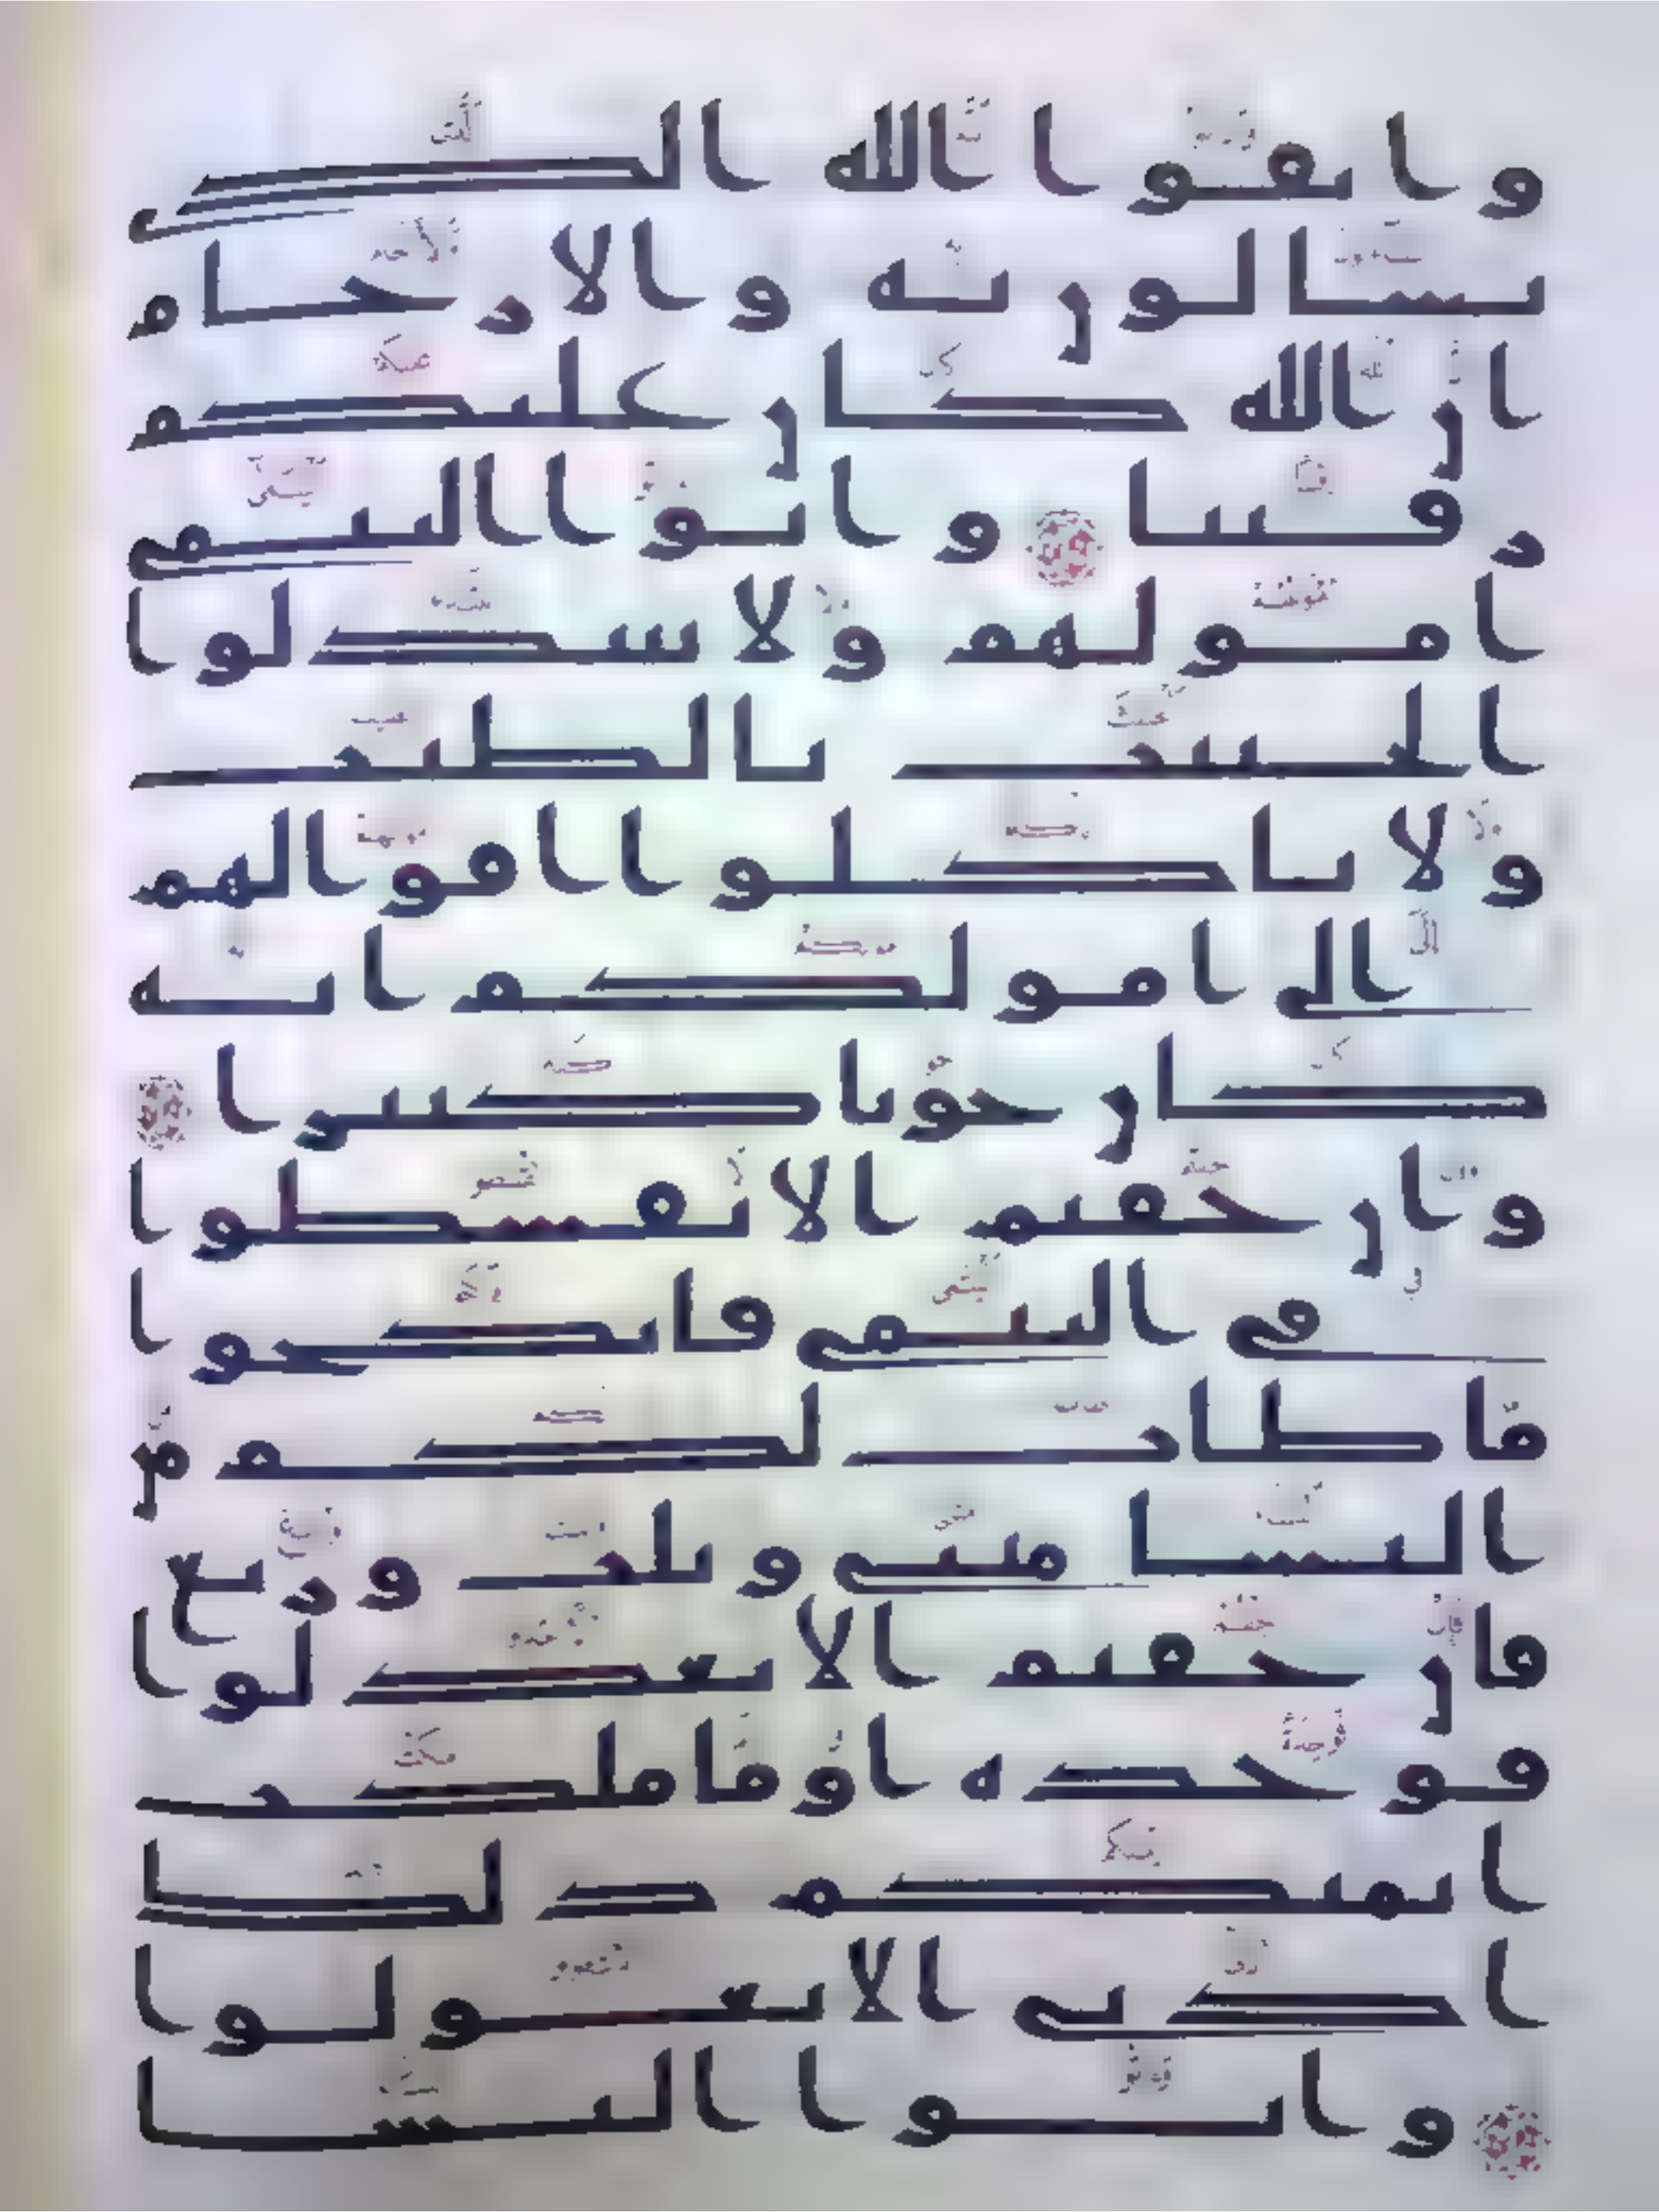 واتقوا الله الذي
تسالون به والارحام
ان الله كان عليكم
رقيبا واتوا اليتمى
امولهم ولا تتبدلوا
الخبيث بالطيب
ولا تاكلوا اموالهم
الى امولكم انه
كان حوبا كبيرا
وان خفتم الا تقسطوا
في اليتمى فانكحوا
ما طاب لكم من
النسا مثنى وثلث وربع
فان خفتم الا تعدلوا
فوحده او ما ملكت
ايمنكم ذلك ا
ادنى الا تعولوا
واتوا النسا